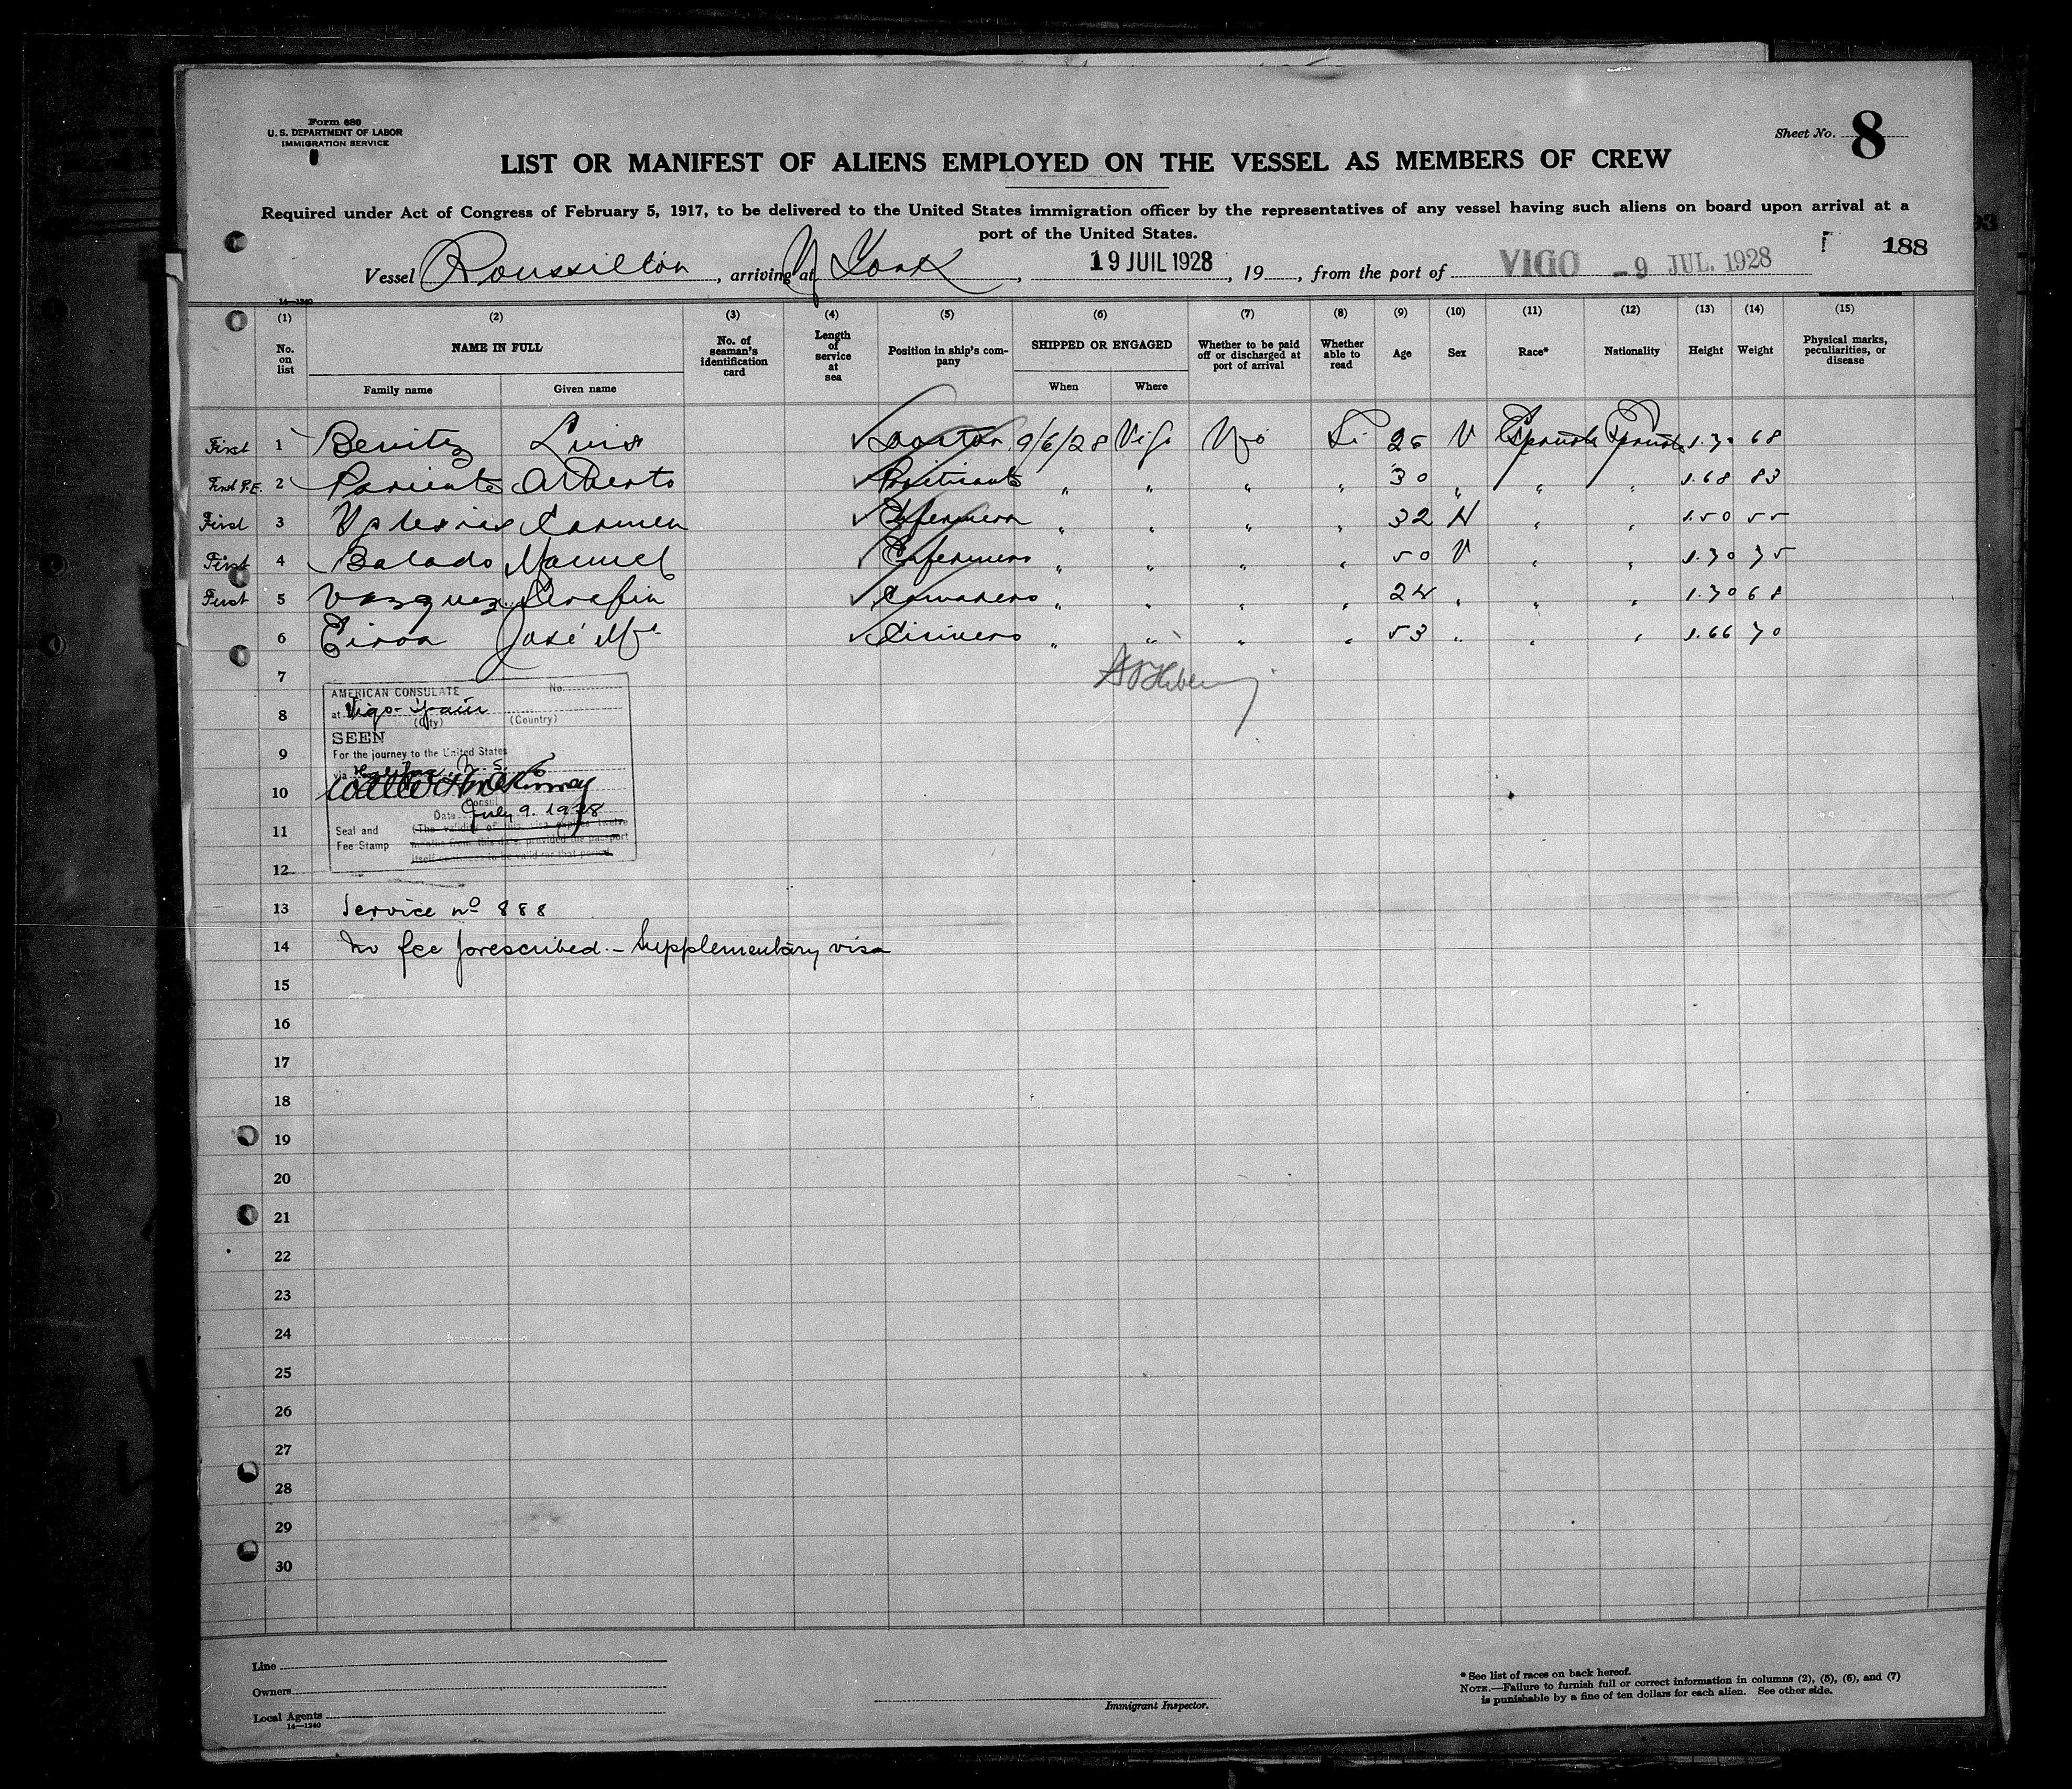 Form 680
U. S. DEPARTMENT OF LABOR
IMMIGRATION SERVICE
Sheet No. 8
LIST OR MANIFEST OF ALIENS EMPLOYED ON THE VESSEL AS MEMBERS OF CREW
Required under Act of Congress of February 5, 1917, to be delivered to the United States immigration officer by the representatives of any vessel having such aliens on board upon arrival at a
port of the United States.
93
188
Vessel Roussillon, arriving at N York, 19 JUIL 1928, 19, from the port of VIGO -9 JUL. 1928
14—1240
(1) (2) (3) (4) (5) (6) (7) (8) (9) (10) (11) (12) (13) (14) (15)
No. on list
NAME IN FULL
Family name Given name
No. of seaman's identification card
Length of service at sea
Position in ship's company
SHIPPED OR ENGAGED
When Where
Whether to be paid off or discharged at port of arrival
Whether able to read
Age
Sex
Race*
Nationality
Height
Weight
Physical marks, peculiarities, or disease
First 1 Benitez Luis Doctor 9/6/28 Vigo No Si 26 V Española Española 1.70 68
First P.E. 2 Pariente Alberto Practicante " " " " 30 " " " 1.68 83
First 3 Yglesias Carmen Enfermera " " " " 32 H " " 1.50 55
First 4 Balado Manuel Enfermero " " " " 50 V " " 1.70 75
First 5 Vazquez Serafin Camarero " " " " 24 " " " 1.70 68
6 Eiroa José Mª Cocinero " " " " 53 " " " 1.66 70
7
AMERICAN CONSULATE No.
8
at Vigo - Spain
(City) (Country)
SEEN
9
For the journey to the United States
via
10
Consul
Date July 9. 1928
11
Seal and Fee Stamp
(The validity of this visa expires twelve
months from this date, provided the passport
itself continues to be valid for that period.
12
13 Service nº 888
14 No fee prescribed. - Supplementary visa
15
16
17
18
19
20
21
22
23
24
25
26
27
28
29
30
Line
Owners
Local Agents
14—1240
Immigrant Inspector.
* See list of races on back hereof.
NOTE.—Failure to furnish full or correct information in columns (2), (5), (6), and (7)
is punishable by a fine of ten dollars for each alien. See other side.